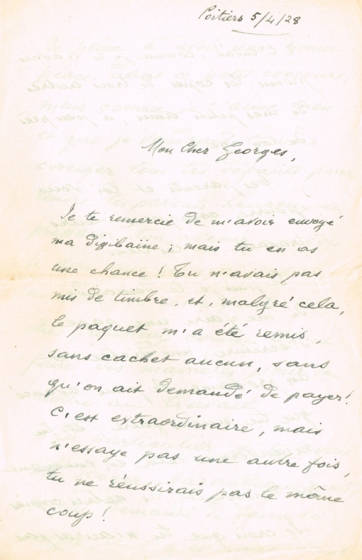 Poitiers 5/4/28
Mon Cher Georges,
Je te remercie de m'avoir envoyé
ma ; mais tu en as
une chance ! Tu n'avais pas
mis de timbre, et, malgré cela,
le paquet m'a été remis,
sans cachet aucun, sans
qu'on ait demandé de payer !
C'est extraordinaire, mais
n'essaye pas une autre fois,
tu ne réussirais pas le même
coup !